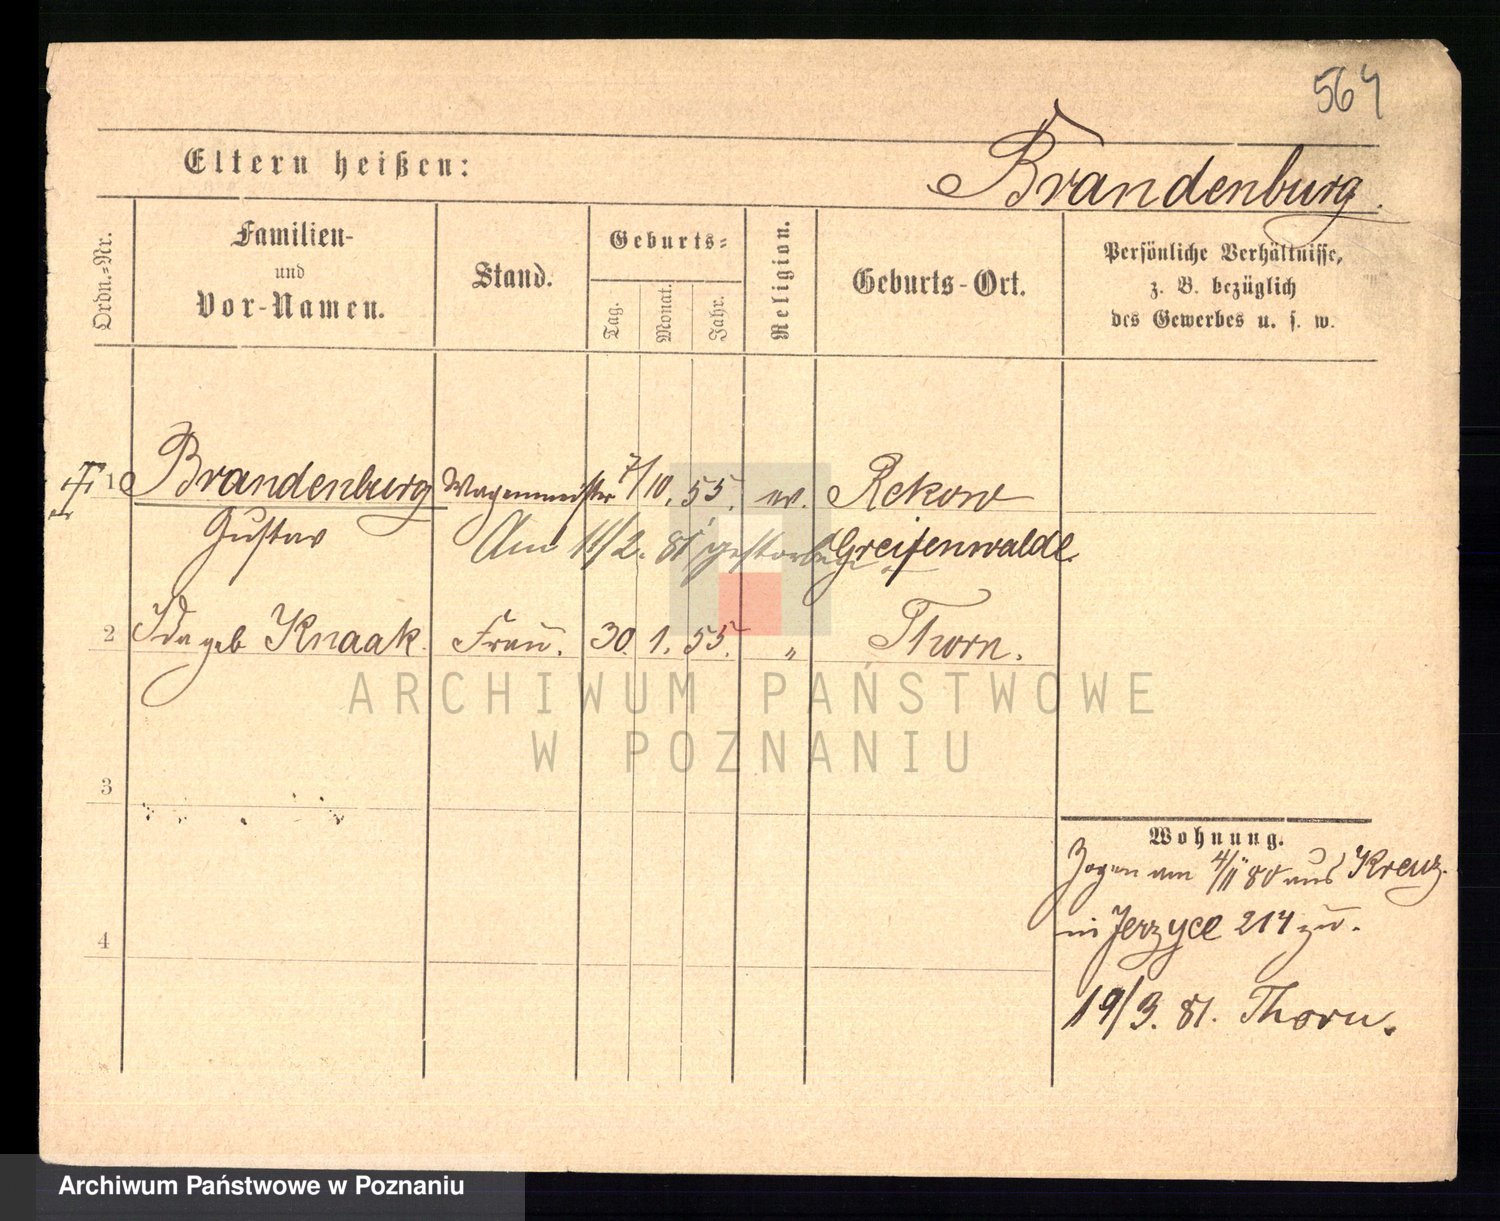 564
Eltern heißen:
Brandenburg.
Ordn.-Nr.
Familien-
und
Vor-Namen.
Stand.
Geburts-
Tag.
Monat.
Jahr.
Religion.
Geburts-Ort.
Persönliche Verhältnisse,
z. B. bezüglich
des Gewerbes u. s. w.
1 Brandenburg Wagenmeister 7/10. 55. ev. Rekow
Gustav Am 11/2. 81 gestorben Greifenwalde.
2 Ida geb Knaak. Frau. 30. 1. 55. " Thorn.
ARCHIWUM PAŃSTWOWE
W POZNANIU
3
Wohnung.
Zogen am 4/11 80 aus Kreuz.
in Jerzyce 214 zu.
4
19/3. 81. Thorn.
Archiwum Państwowe w Poznaniu